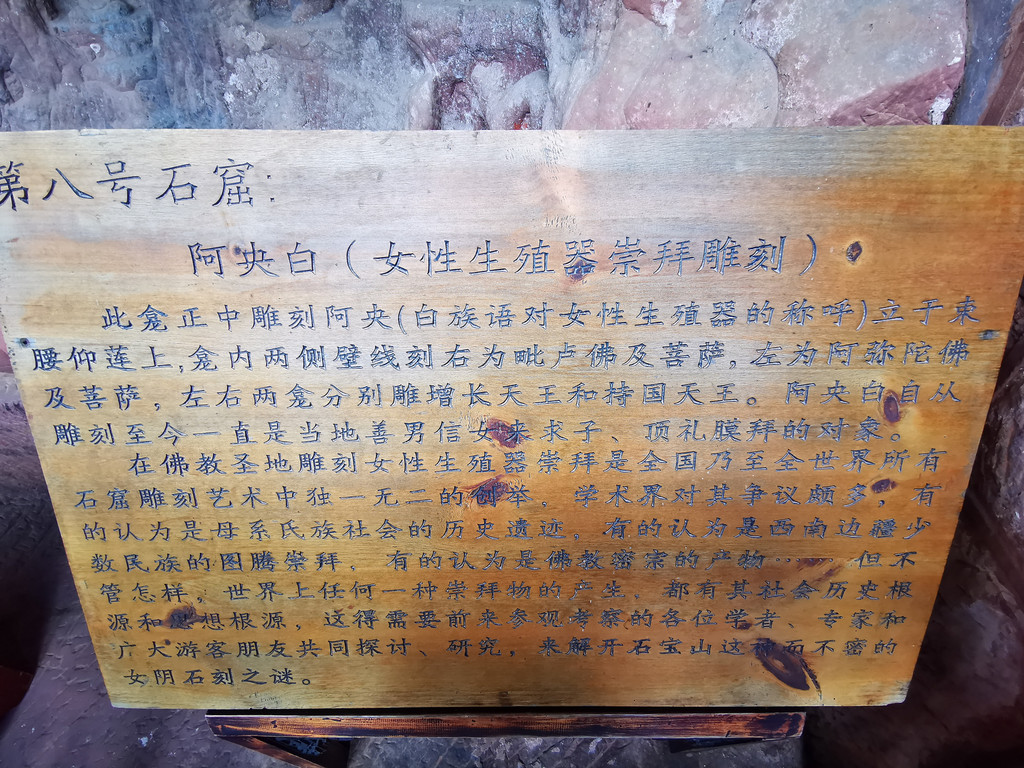 第八号石窟:
阿央白(女性生殖器崇拜雕刻)
此龛正中雕刻阿央(白族语对女性生殖器的称呼)立于束
腰仰莲上,龛内两侧壁线刻右为毗卢佛及菩萨,左为阿弥陀佛
及菩萨,左右两龛分别雕增长天王和持国天王。阿央白自从
雕刻至今一直是当地善男信女来求子、顶礼膜拜的对家。
在佛教圣地雕刻女性生殖器崇拜是全国乃至全世界所有
石窟雕刻艺术中独一无二的创举。学术界对其争议颇多,有
的认为是母系氏族社会的历史遗迹,有的认为是西南边疆少
数民族的图腾崇拜,有的认为是佛教密宗的产物……但不
管怎样,世界上任何一种崇拜物的产生,都有其社会历史根
源和思想根源,这得需要前来参观考察的各位学者、专家和
广大游客朋友共同探讨、研究,来解开石宝山这神而不密的
女阴石刻之谜。